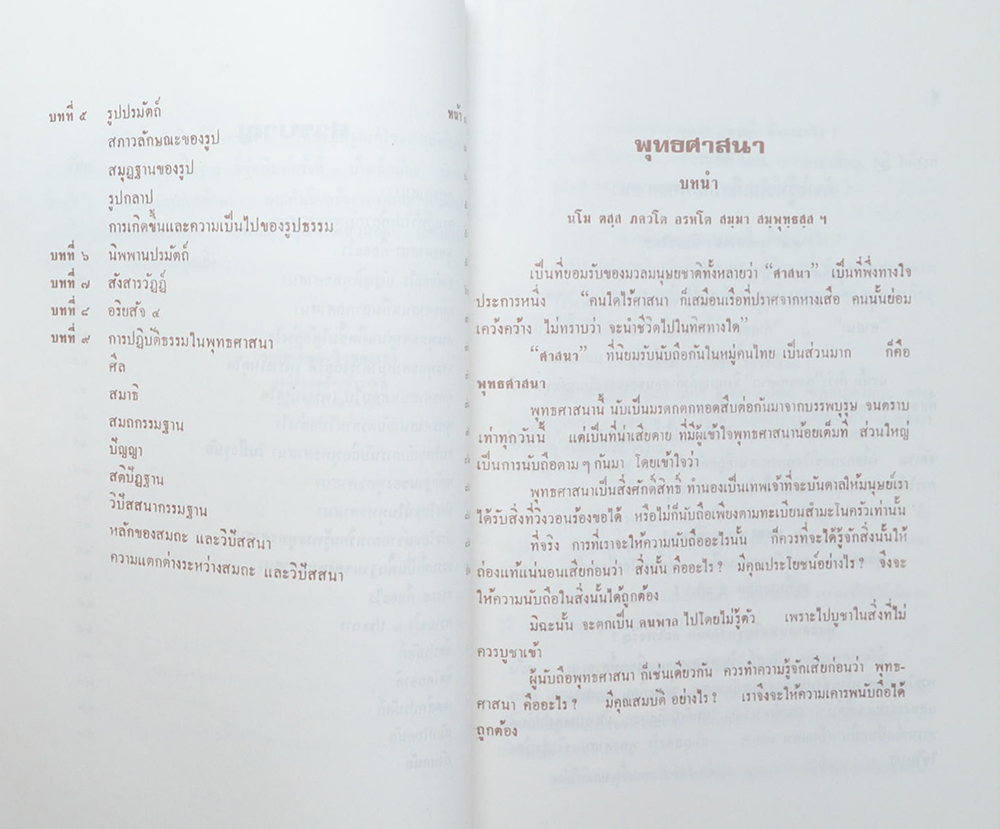 บทที่ ๕ รูปปรมัตถ์
หน้า
สภาวลักษณะของรูป
สมุฏฐานของรูป
รูปกลาป
การเกิดขึ้นและความเป็นไปของรูปธรรม
บทที่ ๖ นิพพานปรมัตถ์
บทที่ ๗ สังสารวัฏฏ์
บทที่ ๘ อริยสัจ ๔
บทที่ ๙ การปฏิบัติธรรมในพุทธศาสนา
ศีล
สมาธิ
สมถกรรมฐาน
ปัญญา
สติปัฏฐาน
วิปัสสนากรรมฐาน
หลักของสมถะ และวิปัสสนา
ความแตกต่างระหว่างสมถะ และวิปัสสนา
พุทธศาสนา
บทนำ
นโม ตสฺส ภควโต อรหโต สมฺมา สมฺพุทฺธสฺส ฯ
เป็นที่ยอมรับของมวลมนุษยชาติทั้งหลายว่า “ศาสนา” เป็นที่พึ่งทางใจ
ประการหนึ่ง “คนใดไร้ศาสนา ก็เสมือนเรือที่ปราศจากหางเสือ คนนั้นย่อม
เคว้งคว้าง ไม่ทราบว่า จะนำชีวิตไปในทิศทางใด”
“ศาสนา” ที่นิยมรับนับถือกันในหมู่คนไทย เป็นส่วนมาก ก็คือ
พุทธศาสนา
พุทธศาสนานี้ นับเป็นมรดกตกทอดสืบต่อกันมาจากบรรพบุรุษ จนตราบ
เท่าทุกวันนี้ แต่เป็นที่น่าเสียดาย ที่มีผู้เข้าใจพุทธศาสนาน้อยเต็มที ส่วนใหญ่
เป็นการนับถือตาม ๆ กันมา โดยเข้าใจว่า
พุทธศาสนาเป็นสิ่งศักดิ์สิทธิ์ ทำนองเป็นเทพเจ้าที่จะบันดาลให้มนุษย์เรา
ได้รับสิ่งที่วิงวอนร้องขอได้ หรือไม่ก็นับถือเพียงตามทะเบียนสำมะโนครัวเท่านั้น
ที่จริง การที่เราจะให้ความนับถืออะไรนั้น ก็ควรที่จะได้รู้จักสิ่งนั้นให้
ถ่องแท้แน่นอนเสียก่อนว่า สิ่งนั้น คืออะไร ? มีคุณประโยชน์อย่างไร ? จึงจะ
ให้ความนับถือในสิ่งนั้นได้ถูกต้อง
มิฉะนั้น จะตกเป็น คนพาล ไปโดยไม่รู้ตัว เพราะไปบูชาในสิ่งที่ไม่
ควรบูชาเข้า
ผู้นับถือพุทธศาสนา ก็เช่นเดียวกัน ควรทำความรู้จักเสียก่อนว่า พุทธ-
ศาสนา คืออะไร ? มีคุณสมบัติ อย่างไร ? เราจึงจะให้ความเคารพนับถือได้
ถูกต้อง